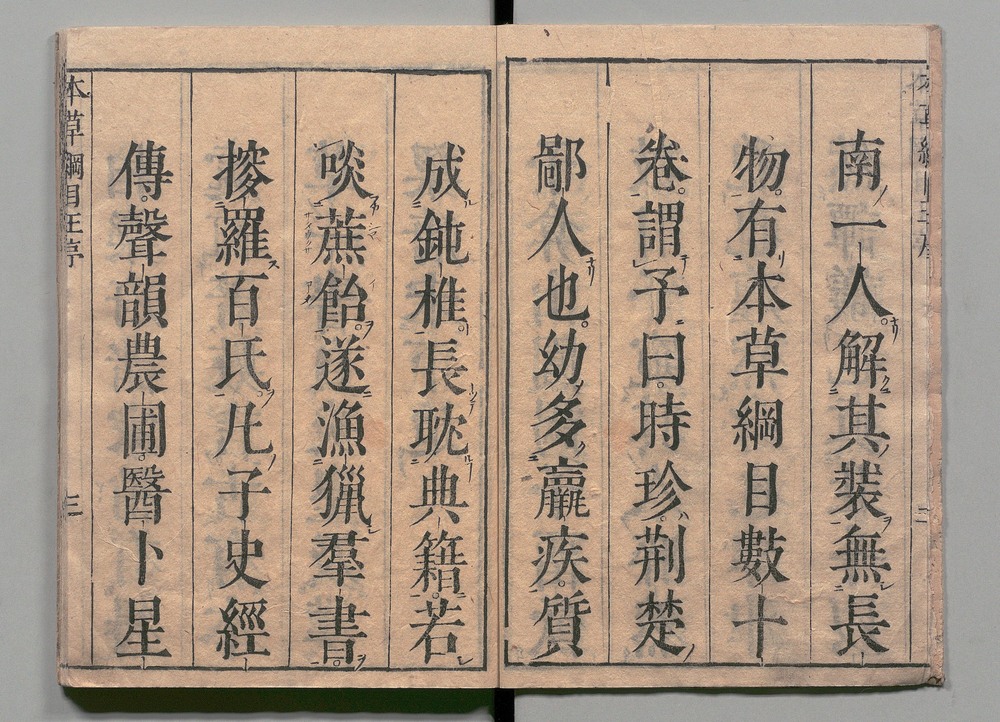 南一人解其装無長
物有本草綱目數十
卷謂予曰時珍荆楚
鄙人也幼多羸疾質
成鈍椎長耽典籍若
啖蔗飴遂漁獵羣書
搜羅百氏凡子史經
傳聲韻農圃醫卜星
本草綱目王序
三